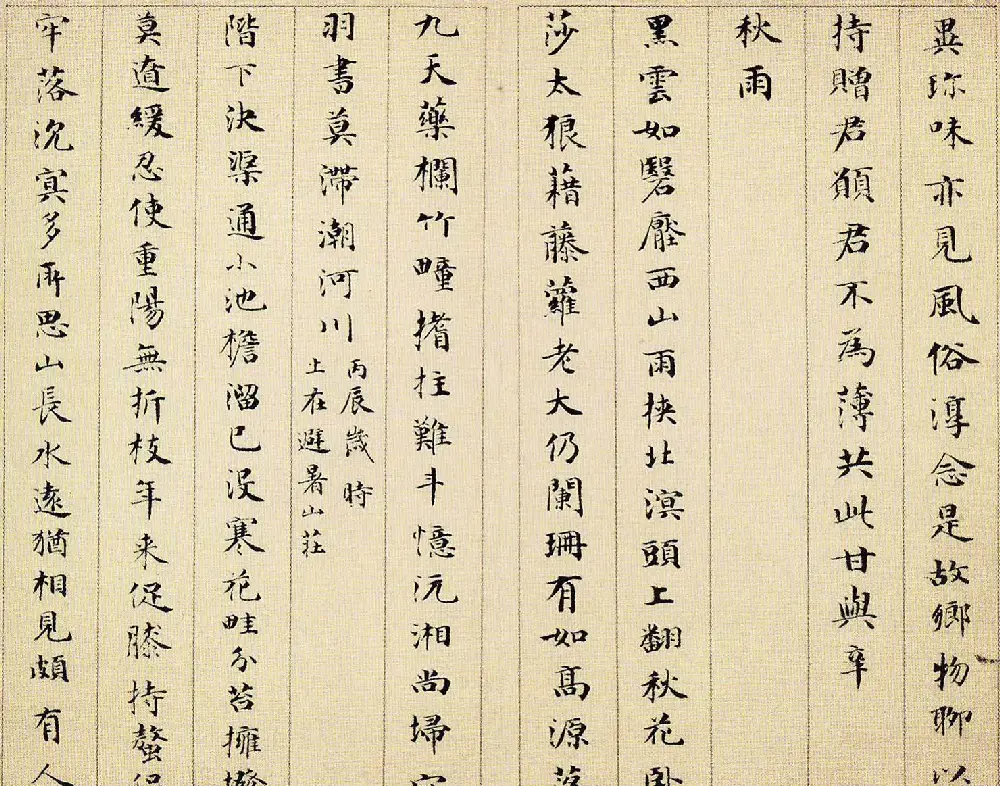 異珎味亦見風俗淳念是故鄉物聊以
持贈君願君不為薄共此甘與辛
秋雨
黑雲如翳壓西山雨挾北溟頭上翻秋花臥
莎太狼藉藤蘿老大仍闌珊有如高源落
九天藥欄竹疃撐拄難斗憶沅湘尚掃
羽書莫滯潮河川
丙辰歲時
上在避暑山莊
階下決渠通小池檐溜已没寒花畦分苔擁
莫遣緩忍使重陽無折枝年来促膝持螯
牢落沉冥多所思山長水遠猶相見頗有人